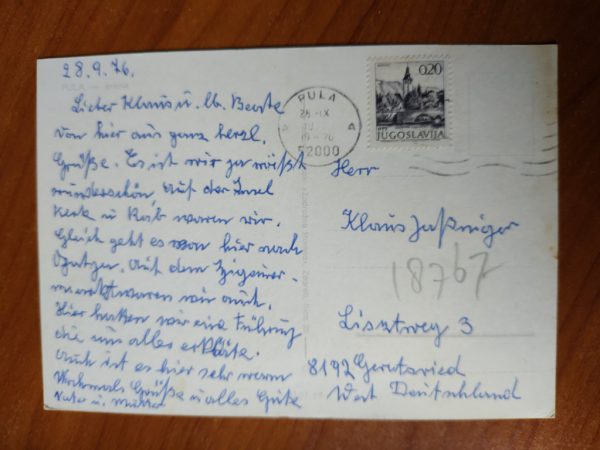 28.9.76.
Lieber Klaus u. lb. Beate
Von hier aus ganz herzl.
Grüße. Es ist wir zu
wunderschön, Auf der Insel
Kerk u Rab waren wir.
Gleich geht es von hier nach
Auf dem
waren wir auch.
Hier hatten wir eine Führung
die uns alles erklärte.
Auch ist es hier sehr warm
Nochmals Grüße u alles Gute
Vater u. Mutter
PULA
28-IX
19-76
52000
0,20
JUGOSLAVIJA
Herr
Klaus
18767
Lisztweg 3
8192 Geretsried
West Deutschland